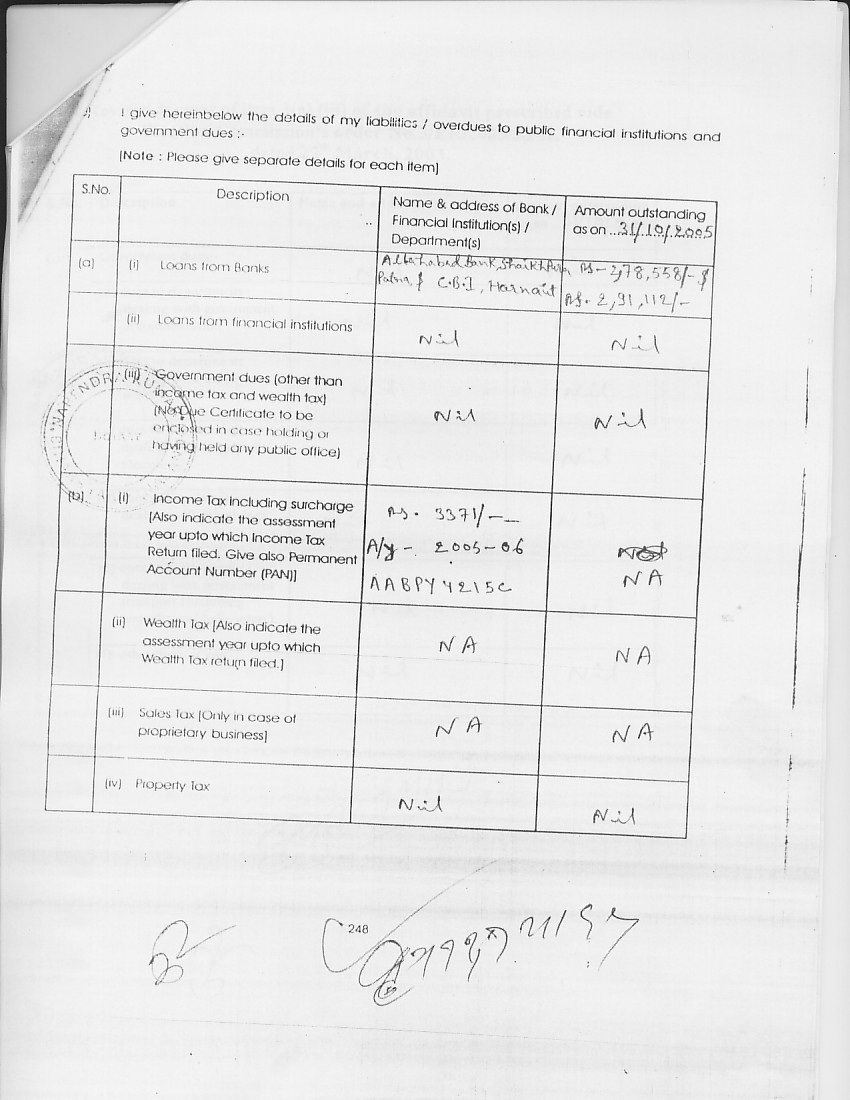 I give hereinbelow the details of my liabilities / overdues to public financial institutions and
government dues :-
[Note : Please give separate details for each item]
S.No.
Description
Name & address of Bank /
Financial Institution(s) /
Department(s)
Amount outstanding
as on ..31/10/2005
(a) (i) Loans from Banks
Allahabad Bank, Sheikhpura,
Patna, & C.B.I, Harnaut
Rs- 2,78,558/- &
Rs. 2,91,112/-
(ii) Loans from financial institutions
Nil
Nil
(iii) Government dues (other than
income tax and wealth tax)
(No Due Certificate to be
enclosed in case holding or
having held any public office)
Nil
Nil
(b) (i) Income Tax including surcharge
[Also indicate the assessment
year upto which Income Tax
Return filed. Give also Permanent
Account Number (PAN)]
Rs. 3371/--
A/y - 2005-06
AABPY4215C
NA
(ii) Wealth Tax [Also indicate the
assessment year upto which
Wealth Tax return filed.]
NA
NA
(iii) Sales Tax [Only in case of
proprietary business]
NA
NA
(iv) Property Tax
Nil
Nil
248